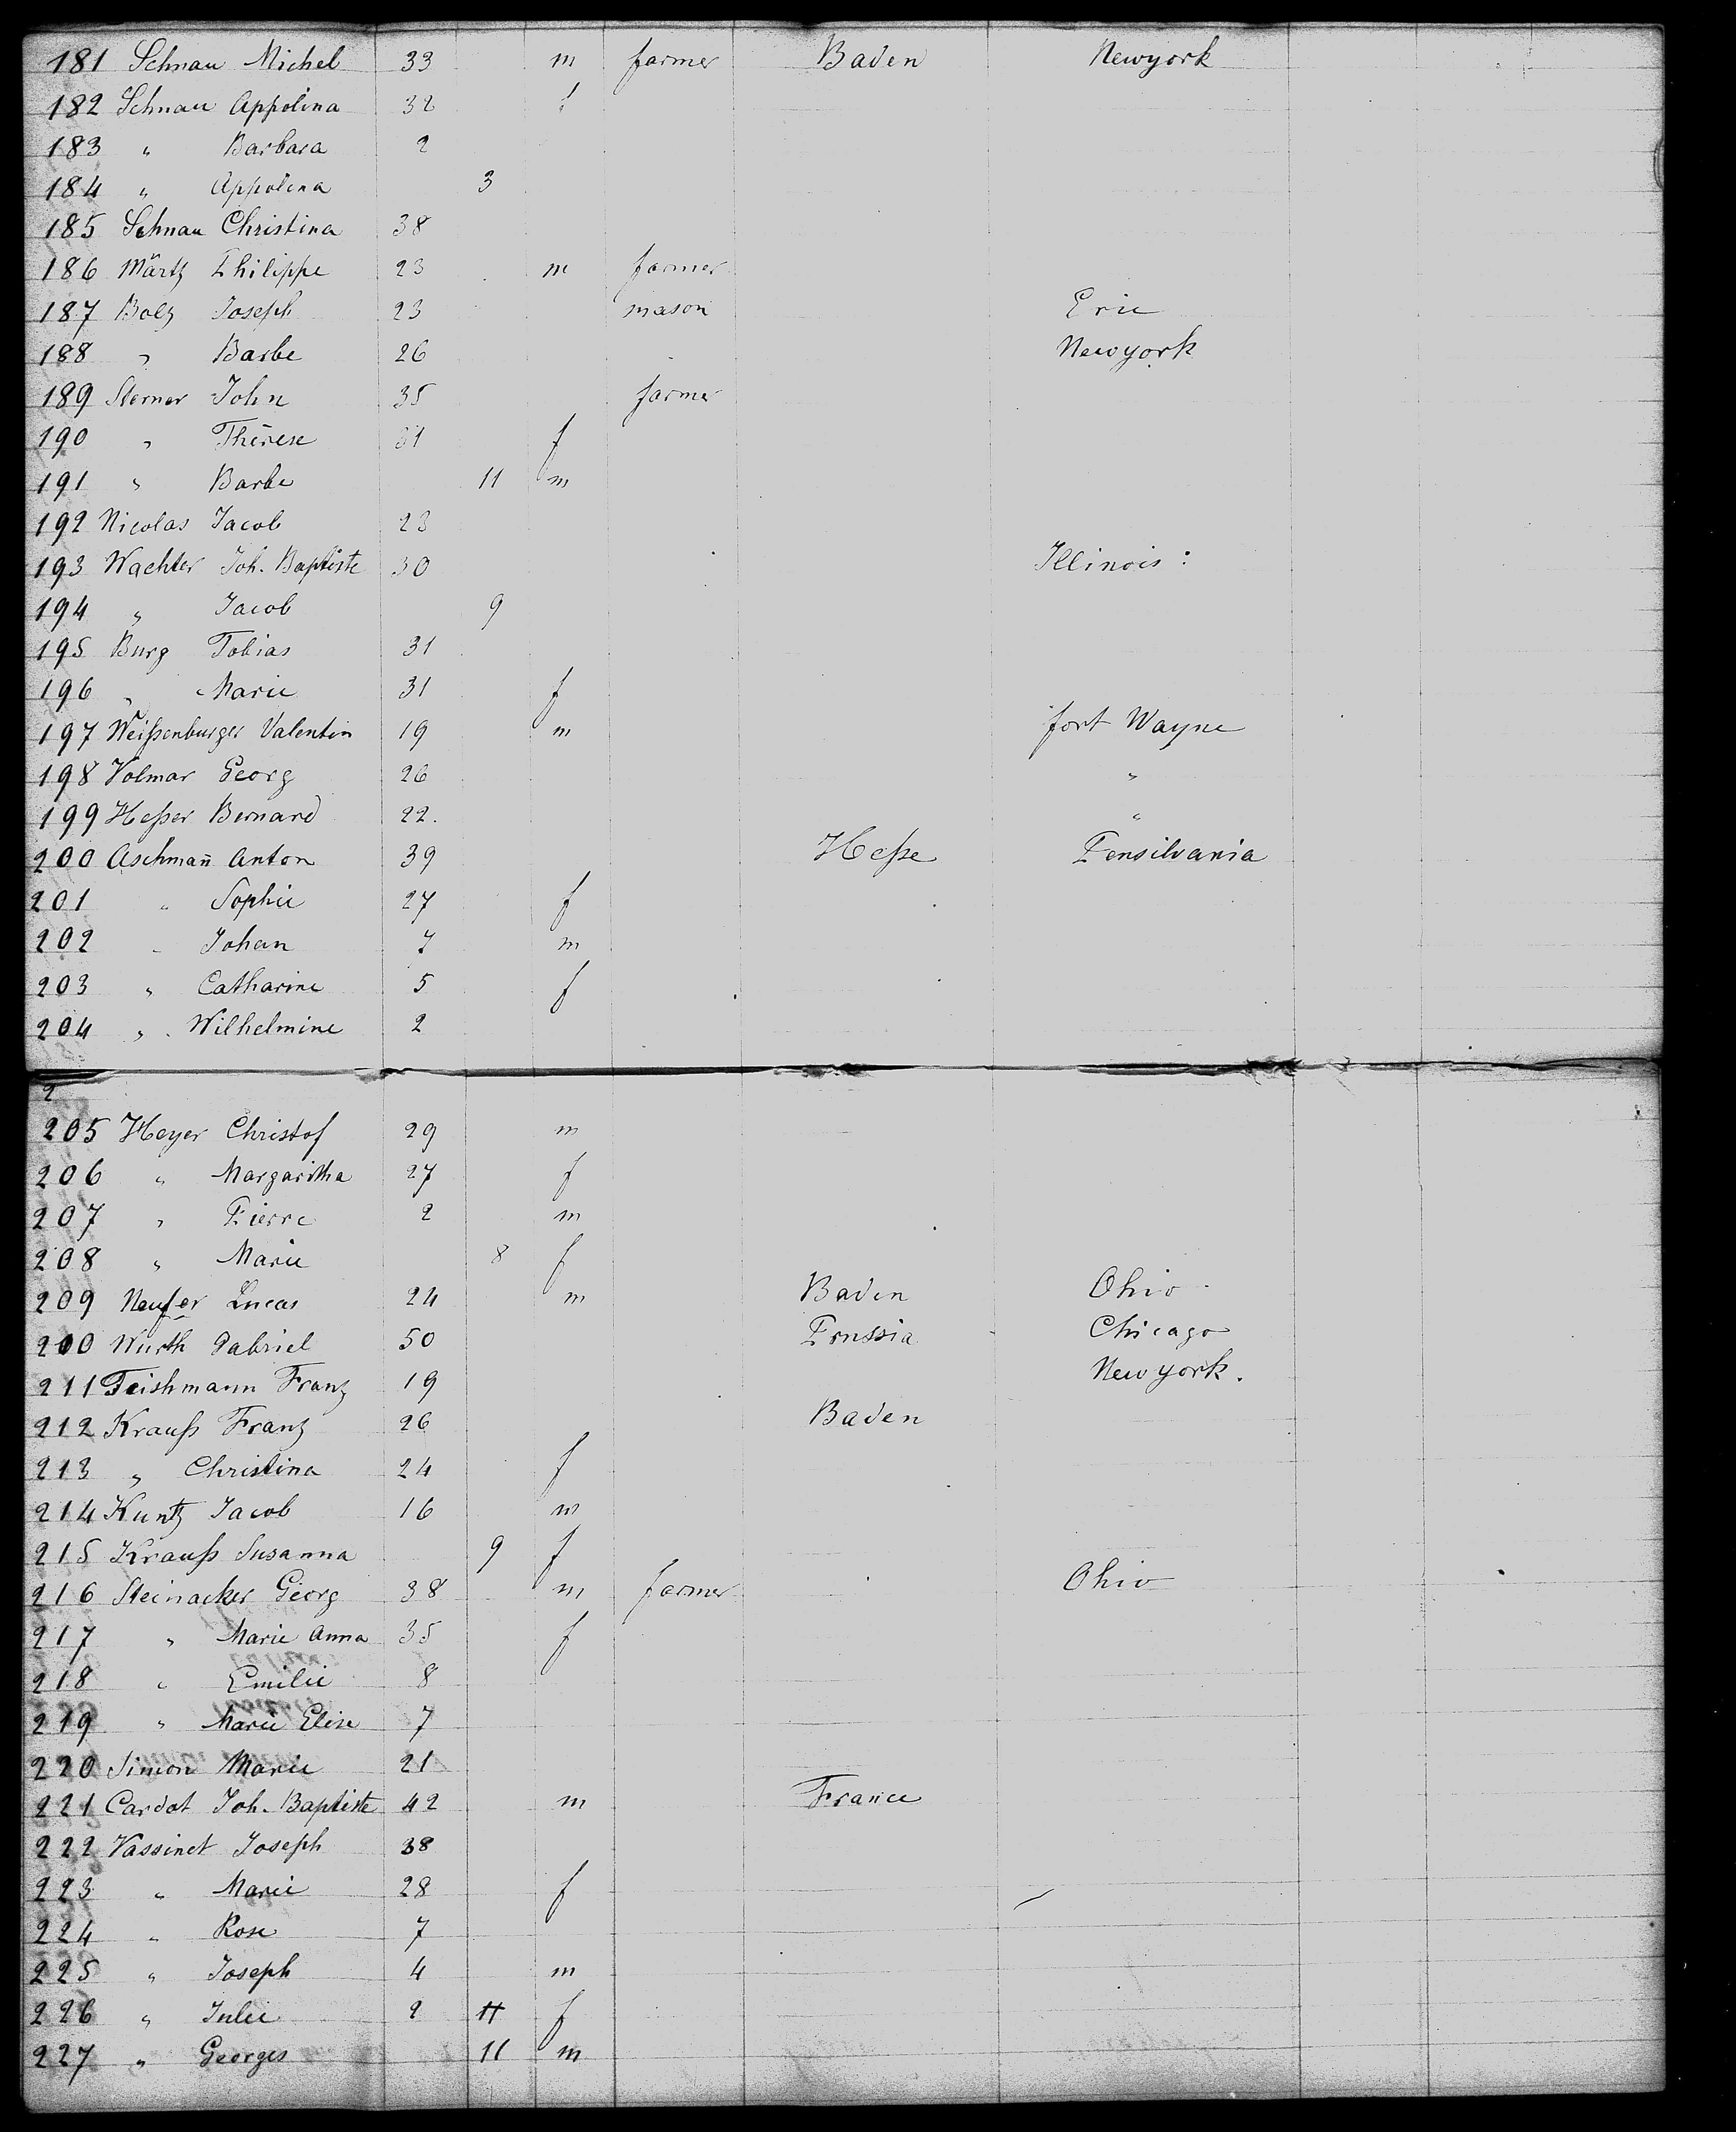 181 Schnau Michel 33 m farmer Baden Newyork
182 Schnau Appolina 32 f
183 " Barbara 2
184 " Appolina 3
185 Schnau Christina 38
186 Märtz Philippe 23 m farmer
187 Bolz Joseph 23 mason Erie
188 " Barbe 26 Newyork
189 Sterner John 35 farmer
190 " Thérese 31 f
191 " Barbe 11 m
192 Nicolas Jacob 23
193 Wachter Joh. Baptiste 30 Illinois :
194 " Jacob 9
195 Burg Tobias 31
196 " Marie 31 f
197 Weißenburger Valentin 19 m fort Wayne
198 Volmar Georg 26 "
199 Heßer Bernard 22. "
200 Aschman̄ Anton 39 Heße Pensilvania
201 " Sophie 27 f
202 " Johan 7 m
203 " Catharine 5 f
204 " Wilhelmine 2
2
205 Heyer Christof 29 m
206 " Margaritha 27 f
207 " Pierre 2 m
208 " Marie 8 f
209 Neufer Lucas 24 m Baden Ohio
200 Wurth Gabriel 50 Prussia Chicago
211 Teishmann Franz 19 New york.
212 Krauß Franz 26 Baden
213 " Christina 24 f
214 Kuntz Jacob 16 m
215 Krauß Susanna 9 f
216 Steinacker Georg 38 m farmer Ohio
217 " Marie Anna 35 f
218 " Emilie 8
219 " Marie Elise 7
220 Simon Marie 21
221 Cardot Joh. Baptiste 42 m France
222 Vassinet Joseph 38
223 " Marie 28 f
224 " Rose 7
225 " Joseph 4 m
226 " Julie 2 f
227 " Georges 11 m